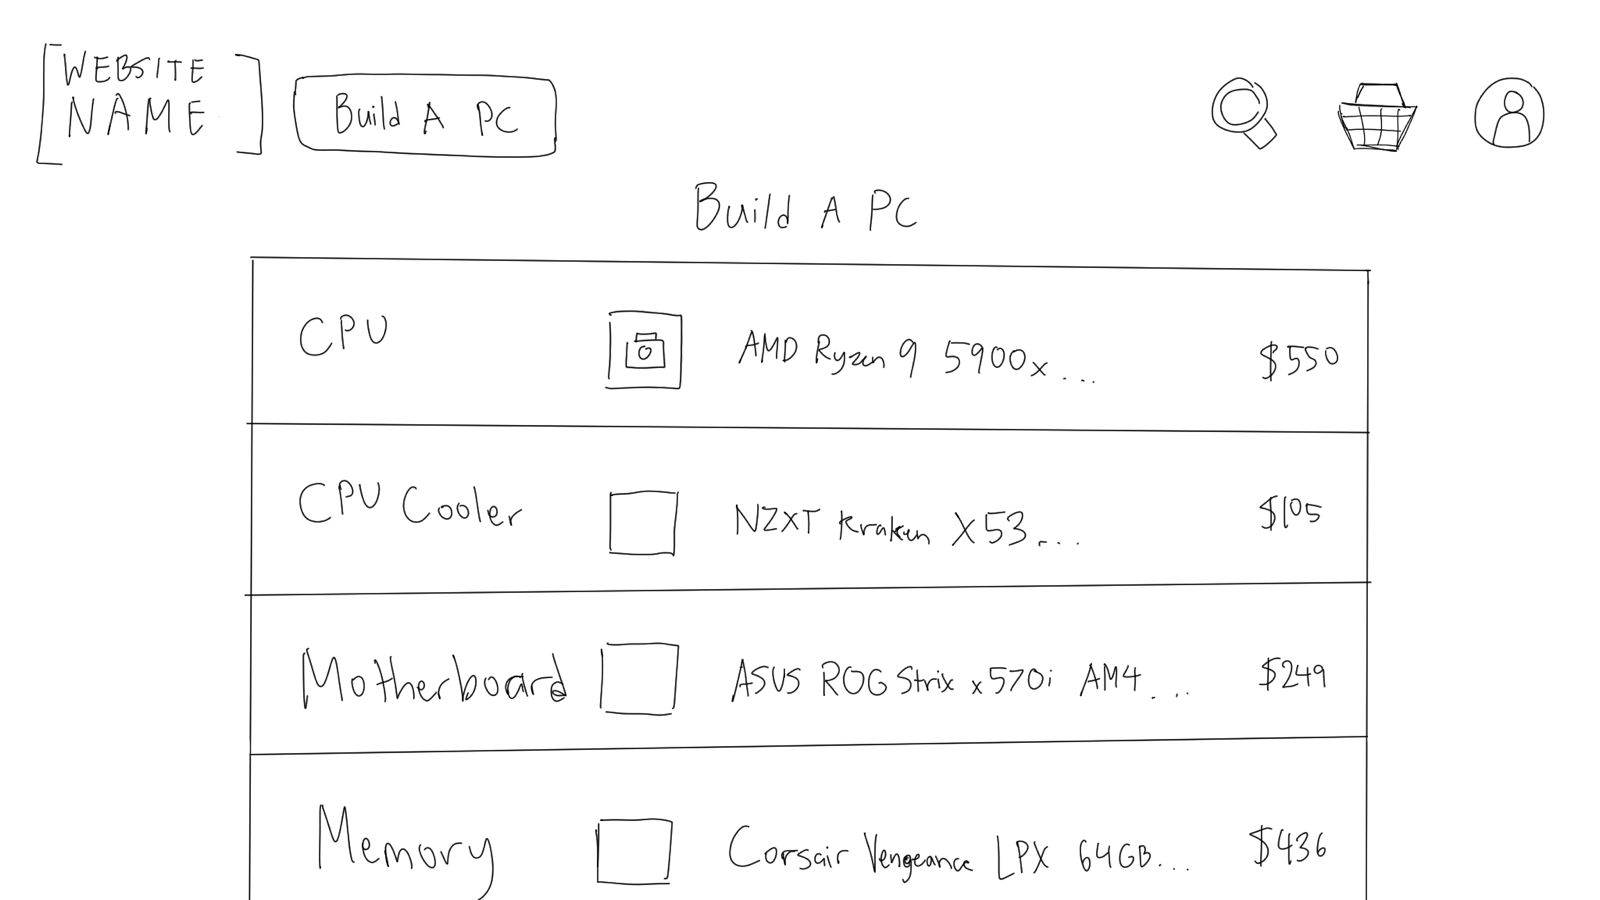 WEBSITE
NAME
Build A PC
Build A PC
CPU
AMD Ryzen 9 5900x...
$550
CPU Cooler
NZXT Kraken X53...
$105
Motherboard
ASUS ROG Strix x570i AM4...
$249
Memory
Corsair Vengeance LPX 64GB...
$436